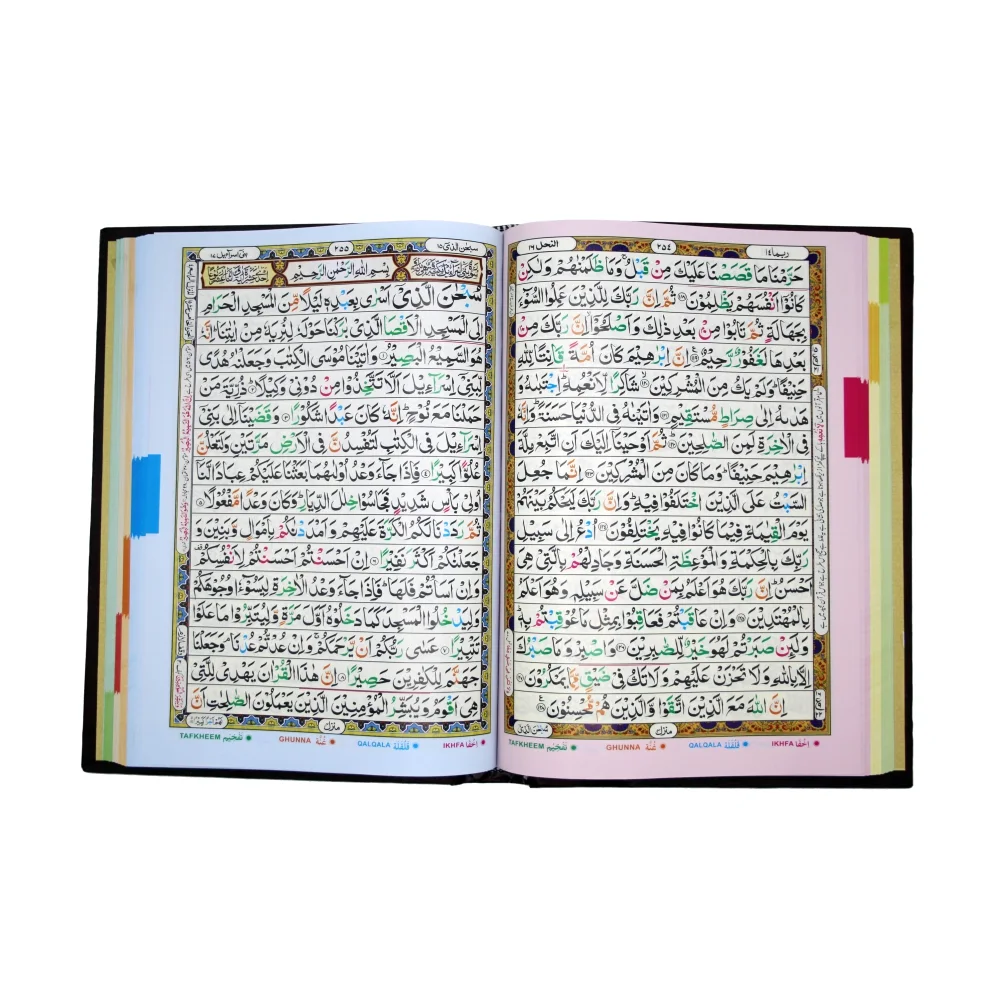 ربما ١٤ ٢٥٤ النحل ١٦
حَرَّمْنَا مَا قَصَصْنَا عَلَيْكَ مِنْ قَبْلُ ۚ وَمَا ظَلَمْنٰهُمْ وَلٰكِنْ
كَانُوْۤا اَنْفُسَهُمْ يَظْلِمُوْنَ ﴿١١٨﴾ ثُمَّ اِنَّ رَبَّكَ لِلَّذِيْنَ عَمِلُوا السُّوْٓءَ
بِجَهَالَةٍ ثُمَّ تَابُوْا مِنْۢ بَعْدِ ذٰلِكَ وَاَصْلَحُوْۤا اِنَّ رَبَّكَ مِنْۢ
بَعْدِهَا لَغَفُوْرٌ رَّحِيْمٌ ﴿١١٩﴾ اِنَّ اِبْرٰهِيْمَ كَانَ اُمَّةً قَانِتًا لِّلّٰهِ
حَنِيْفًا ؕ وَلَمْ يَكُ مِنَ الْمُشْرِكِيْنَ ﴿١٢٠﴾ شَاكِرًا لِّاَنْعُمِهٖ ؕ اِجْتَبٰىهُ وَ
هَدٰىهُ اِلٰى صِرَاطٍ مُّسْتَقِيْمٍ ﴿١٢١﴾ وَاٰتَيْنٰهُ فِى الدُّنْيَا حَسَنَةً ؕ وَاِنَّهٗ
فِى الْاٰخِرَةِ لَمِنَ الصّٰلِحِيْنَ ﴿١٢٢﴾ ثُمَّ اَوْحَيْنَاۤ اِلَيْكَ اَنِ اتَّبِعْ مِلَّةَ
اِبْرٰهِيْمَ حَنِيْفًا ؕ وَمَا كَانَ مِنَ الْمُشْرِكِيْنَ ﴿١٢٣﴾ اِنَّمَا جُعِلَ
السَّبْتُ عَلَى الَّذِيْنَ اخْتَلَفُوْا فِيْهِ ؕ وَاِنَّ رَبَّكَ لَيَحْكُمُ بَيْنَهُمْ
يَوْمَ الْقِيٰمَةِ فِيْمَا كَانُوْا فِيْهِ يَخْتَلِفُوْنَ ﴿١٢٤﴾ اُدْعُ اِلٰى سَبِيْلِ
رَبِّكَ بِالْحِكْمَةِ وَالْمَوْعِظَةِ الْحَسَنَةِ وَجَادِلْهُمْ بِالَّتِىْ هِىَ
اَحْسَنُ ؕ اِنَّ رَبَّكَ هُوَ اَعْلَمُ بِمَنْ ضَلَّ عَنْ سَبِيْلِهٖ وَهُوَ اَعْلَمُ
بِالْمُهْتَدِيْنَ ﴿١٢٥﴾ وَاِنْ عَاقَبْتُمْ فَعَاقِبُوْا بِمِثْلِ مَا عُوْقِبْتُمْ بِهٖ ؕ
وَلَئِنْ صَبَرْتُمْ لَهُوَ خَيْرٌ لِّلصّٰبِرِيْنَ ﴿١٢٦﴾ وَاصْبِرْ وَمَا صَبْرُكَ
اِلَّا بِاللّٰهِ وَلَا تَحْزَنْ عَلَيْهِمْ وَلَا تَكُ فِىْ ضَيْقٍ مِّمَّا يَمْكُرُوْنَ ﴿١٢٧﴾
اِنَّ اللّٰهَ مَعَ الَّذِيْنَ اتَّقَوْا وَّالَّذِيْنَ هُمْ مُّحْسِنُوْنَ ﴿١٢٨﴾
منزل
IKHFA اخفا QALQALA قلقلة GHUNNA غنة TAFKHEEM تفخيم
سبحن الذی ١٥ ٢٥٥ بنی اسرآءیل ١٧
بِسْمِ اللّٰهِ الرَّحْمٰنِ الرَّحِيْمِ
سُبْحٰنَ الَّذِىْۤ اَسْرٰى بِعَبْدِهٖ لَيْلًا مِّنَ الْمَسْجِدِ الْحَرَامِ
اِلَى الْمَسْجِدِ الْاَقْصَا الَّذِىْ بٰرَكْنَا حَوْلَهٗ لِنُرِيَهٗ مِنْ اٰيٰتِنَا ؕ اِنَّهٗ
هُوَ السَّمِيْعُ الْبَصِيْرُ ﴿١﴾ وَاٰتَيْنَا مُوْسَى الْكِتٰبَ وَجَعَلْنٰهُ هُدًى
لِّبَنِىْۤ اِسْرَآءِيْلَ اَلَّا تَتَّخِذُوْا مِنْ دُوْنِىْ وَكِيْلًا ﴿٢﴾ ذُرِّيَّةَ مَنْ
حَمَلْنَا مَعَ نُوْحٍ ؕ اِنَّهٗ كَانَ عَبْدًا شَكُوْرًا ﴿٣﴾ وَقَضَيْنَاۤ اِلٰى بَنِىْۤ
اِسْرَآءِيْلَ فِى الْكِتٰبِ لَتُفْسِدُنَّ فِى الْاَرْضِ مَرَّتَيْنِ وَلَتَعْلُنَّ
عُلُوًّا كَبِيْرًا ﴿٤﴾ فَاِذَا جَآءَ وَعْدُ اُوْلٰىهُمَا بَعَثْنَا عَلَيْكُمْ عِبَادًا لَّنَاۤ
اُولِىْ بَاْسٍ شَدِيْدٍ فَجَاسُوْا خِلٰلَ الدِّيَارِ ؕ وَكَانَ وَعْدًا مَّفْعُوْلًا ﴿٥﴾
ثُمَّ رَدَدْنَا لَكُمُ الْكَرَّةَ عَلَيْهِمْ وَاَمْدَدْنٰكُمْ بِاَمْوَالٍ وَّبَنِيْنَ وَ
جَعَلْنٰكُمْ اَكْثَرَ نَفِيْرًا ﴿٦﴾ اِنْ اَحْسَنْتُمْ اَحْسَنْتُمْ لِاَنْفُسِكُمْ ۫
وَاِنْ اَسَاْتُمْ فَلَهَا ؕ فَاِذَا جَآءَ وَعْدُ الْاٰخِرَةِ لِيَسُوْٓءٗا وُجُوْهَكُمْ
وَلِيَدْخُلُوا الْمَسْجِدَ كَمَا دَخَلُوْهُ اَوَّلَ مَرَّةٍ وَّلِيُتَبِّرُوْا مَا عَلَوْا
تَتْبِيْرًا ﴿٧﴾ عَسٰى رَبُّكُمْ اَنْ يَّرْحَمَكُمْ ۚ وَاِنْ عُدْتُّمْ عُدْنَا ۘ وَجَعَلْنَا
جَهَنَّمَ لِلْكٰفِرِيْنَ حَصِيْرًا ﴿٨﴾ اِنَّ هٰذَا الْقُرْاٰنَ يَهْدِىْ لِلَّتِىْ
هِىَ اَقْوَمُ وَيُبَشِّرُ الْمُؤْمِنِيْنَ الَّذِيْنَ يَعْمَلُوْنَ الصّٰلِحٰتِ اَنَّ
منزل
IKHFA اخفا QALQALA قلقلة GHUNNA غنة TAFKHEEM تفخيم